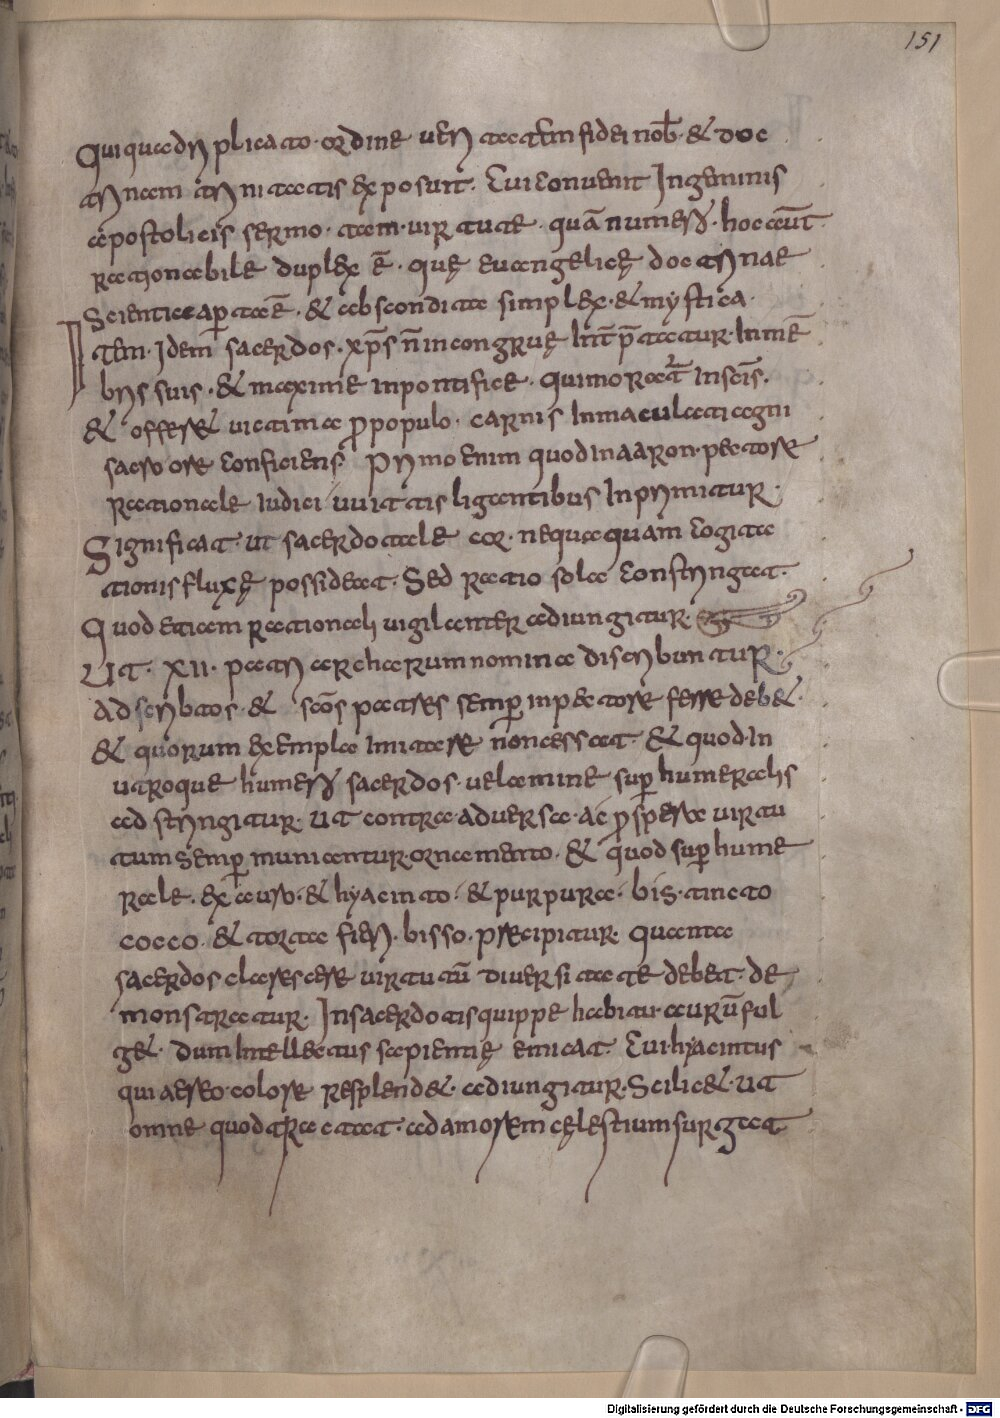 151
Qui quadriplicato · ordine veri tactum fidei nob̄ · & doc
trinam trinitatis exposuit. Cui convenit In geminis
apostolicis sermo · tam · virtute · quā numeris. hoc aūt
rationabile duplex ē. quę euangelicę doctrinae
Scientia ap̱ta ē. & abscondita simplex · & mystica.
Item · Idem sacerdos. xp̄s n̄ incongruę Int̄ p̄tatur · In mē
bris suis. & maxime in pontifice. qui moratr̄ In scīs.
& offeret victima p̱ populo. carnis Inmaculati agni
sacro ore conficiens. Primo enim quod In aaron · pectore
Rationale iudici vi vittis ligantibus Inprimitur.
Significat · ut sacerdotale cor · nequaquam cogita
tionis fluxę possideat. Sed Ratio sola constringat.
Quod etiam rationali vigilanter adiungitur.
Ut · XII · patriarcharum nomina discribuntur.
Adscribtos · & scōs patres semp̱ in pectore ferre deb&.
& quorum exempla imitare non cessat. & quod · In
utroque humeris sacerdos · velamine sup̱ humeralis
adstringitur. Ut contra · adversa · ac p̱spera virtu
tum semp̱ muniantur · ornamento. & quod sup̱ hume
rale. ex auro. & hyacinto. & purpura. bis · tincto
cocco. & torta fieri. bisso. precipitur. quanta
sacerdos clarescere virtutū diversitate debeat · de
monstratur. In sacerdotis quippe habitu · aurū ful
g&. dum Intellectus sapientię emicat. Cui · hyacintus
qui aereo · colore resplend&. adiungitur. Scilic& · ut
omne quod tractat · ad amorem cęlestium surgat
Digitalisierung gefördert durch die Deutsche Forschungsgemeinschaft - DFG